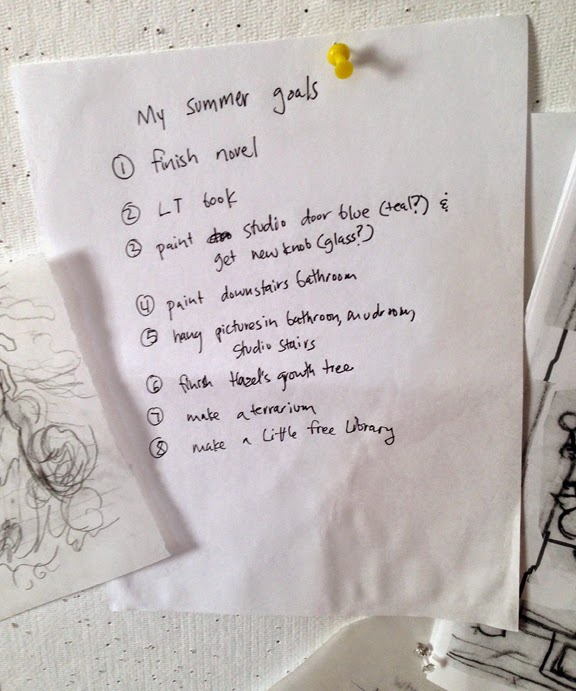 My summer goals
① finish novel
② LT book
③ paint studio door blue (teal?) &
get new knob (glass?)
④ paint downstairs bathroom
⑤ hang pictures in bathroom, mudroom,
studio stairs
⑥ finish Hazel's growth tree
⑦ make a terrarium
⑧ make a Little free Library